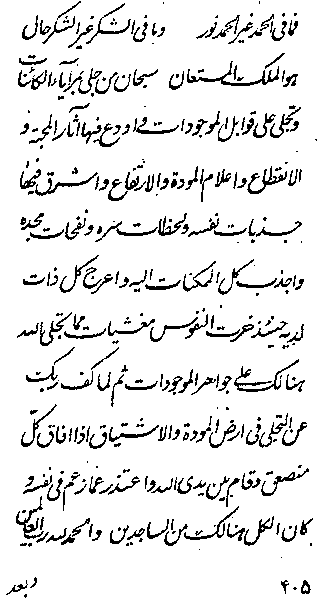 فما فی الحمد غیر الحمد نور وما فی الشکر غیر الشکر حال
هو الملک المستعان سبحان من جلی مرایاء الکائنات
وتجلی علی قوابل الموجودات واودع فیها آثار المحبة و
الانقطاع واعلام المودة والارتفاع واشرق فیها
جذبات نفسه ولحظات سره ونفحات مجده
واجذب کل الممکنات الیه واعرج کل ذات
لدیه حینئذ خرت النفوس مغشیات مما تجلی الله
هنالک علی جواهر الموجودات ثم لما کف ربک
عن التجلی فی ارض المودة والاشتیاق اذا افاق کل
منصعق وقام بین یدی الله واعتذر عما زعم فی نفسه و
کان الکل هنالک من الساجدین والحمد لله رب العالمین
۴۰۵ وبعد